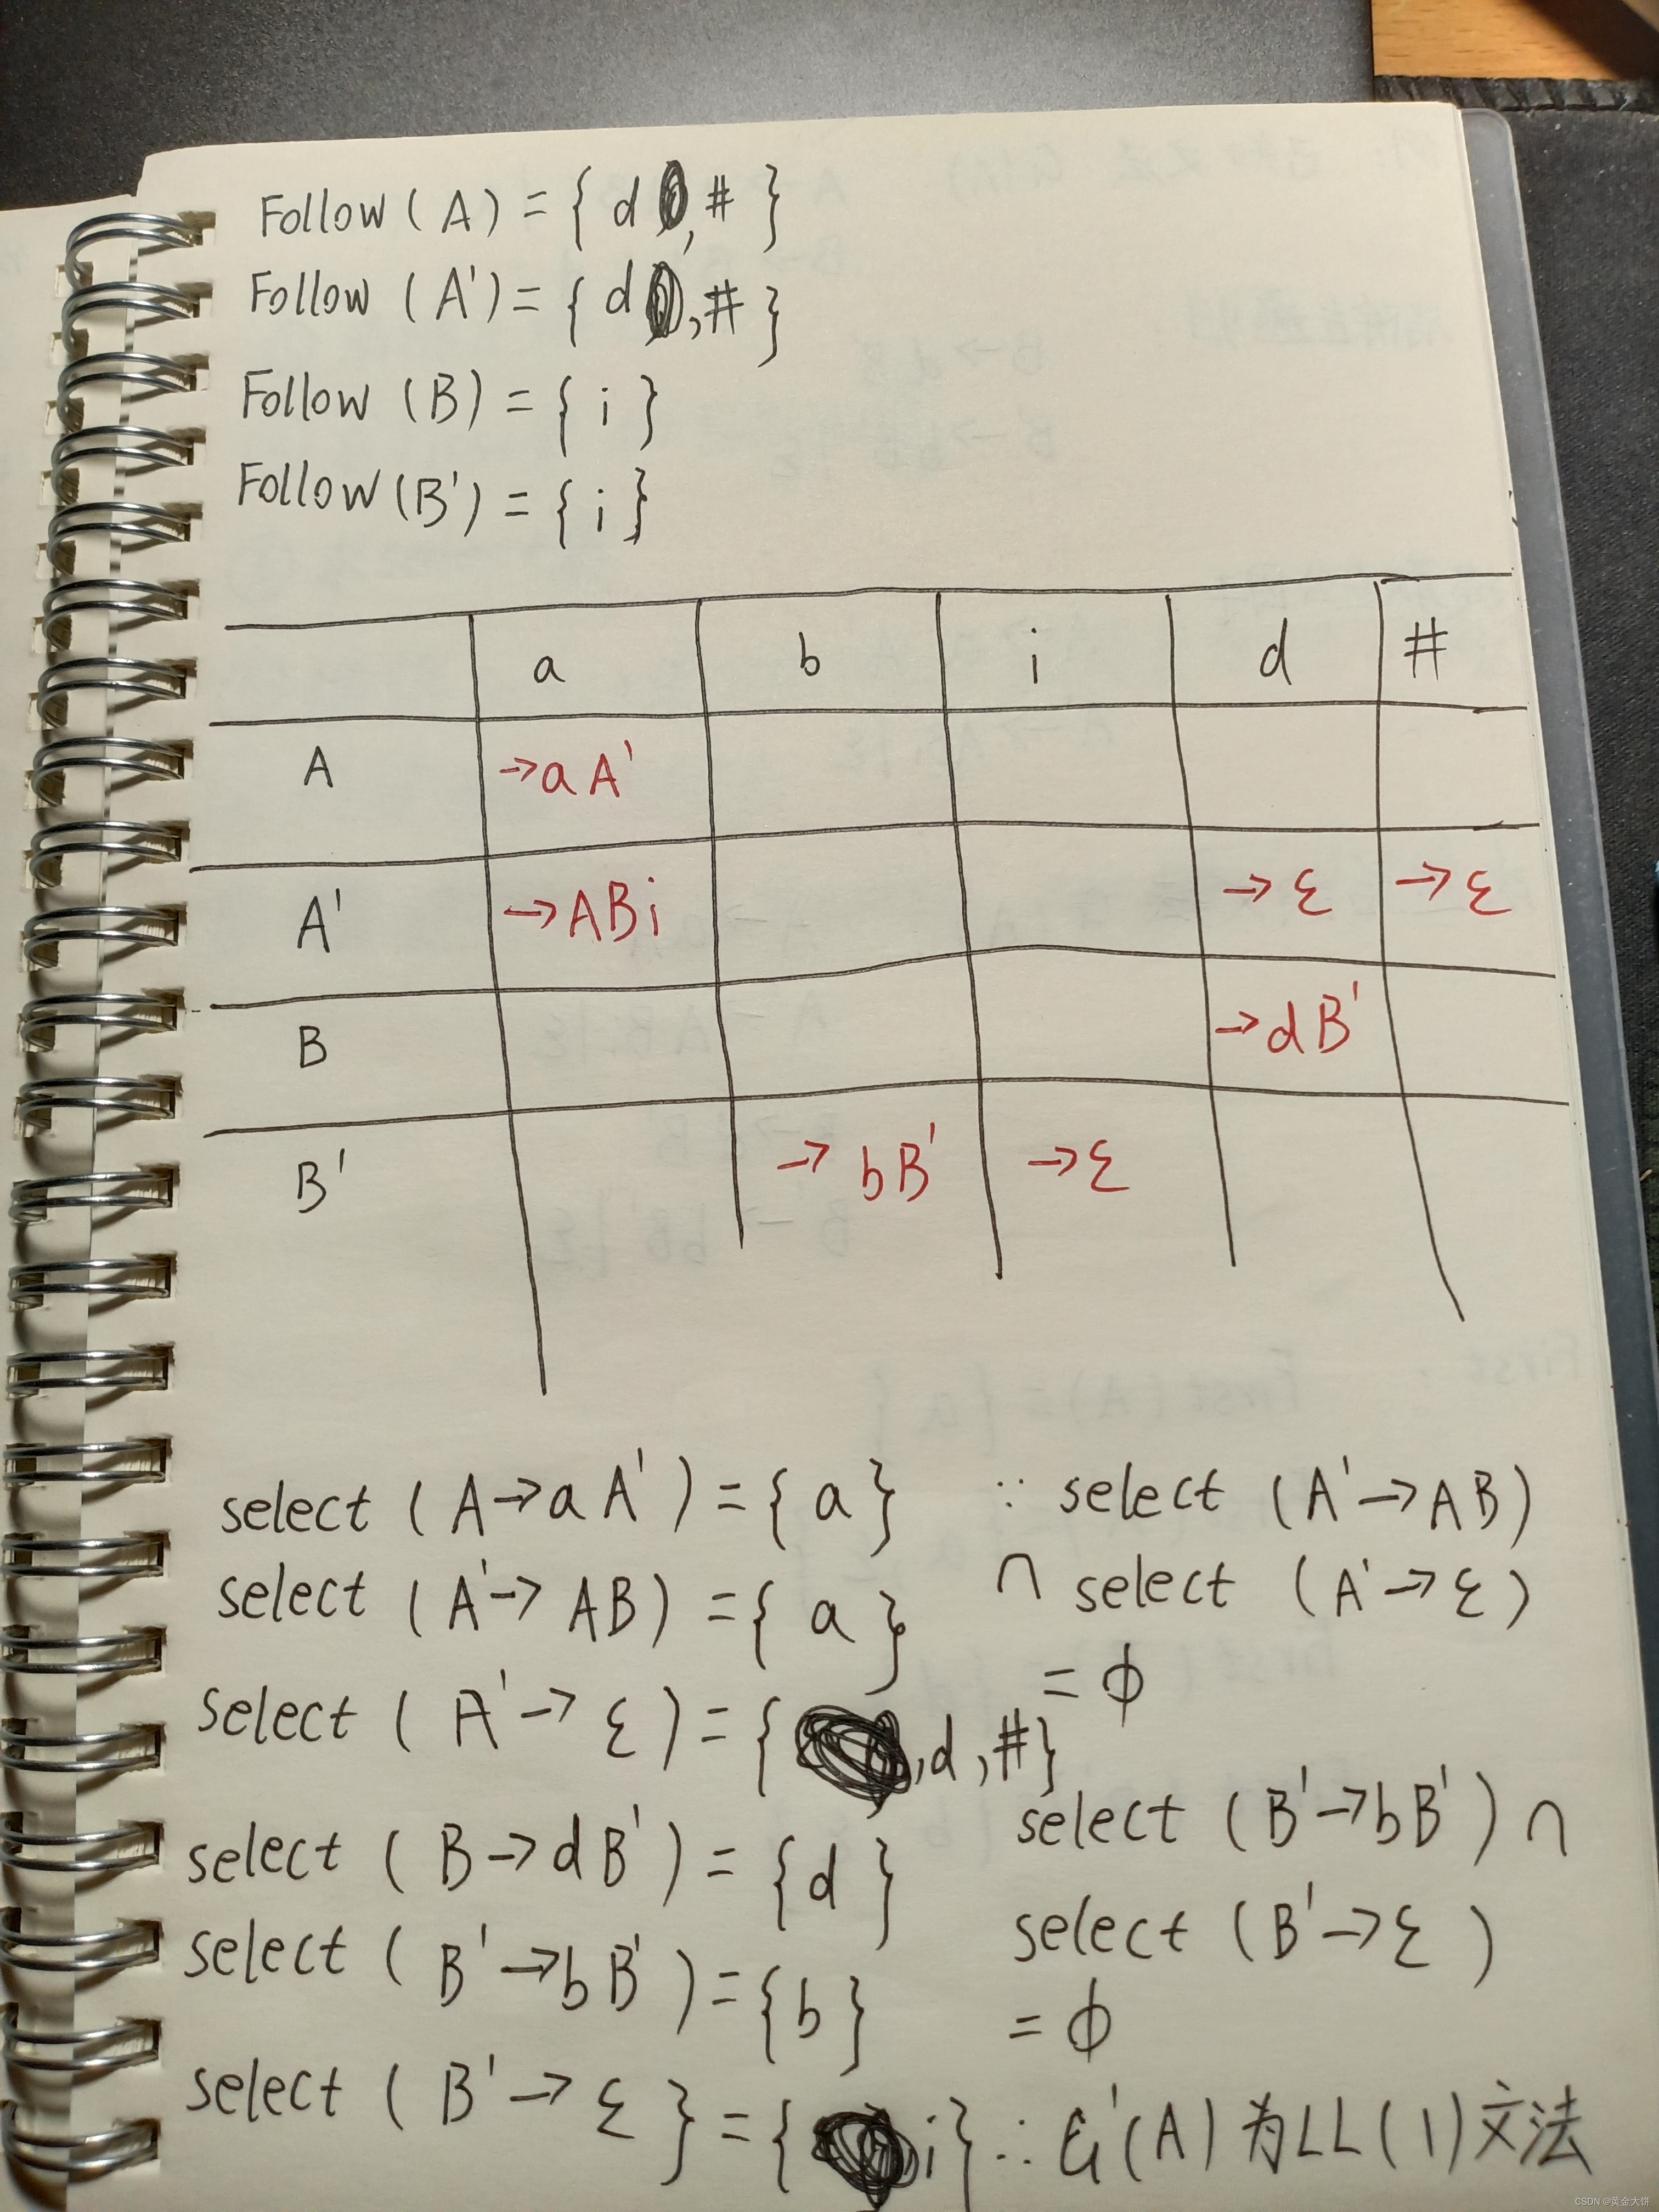 Follow (A) = { d , # }
Follow (A') = { d , # }
Follow (B) = { i }
Follow (B') = { i }
a b i d #
A →aA'
A' →ABi →ε →ε
B →dB'
B' →bB' →ε
select (A→aA') = {a}
select (A'→AB) = {a}
select (A'→ε) = { ,d,#}
select (B→dB') = {d}
select (B'→bB') = {b}
select (B'→ε} = { i}
∵ select (A'→AB)
∩ select (A'→ε)
= ϕ
select (B'→bB') ∩
select (B'→ε)
= ϕ
∴ G'(A) 为LL(1)文法
CSDN @黄金大饼